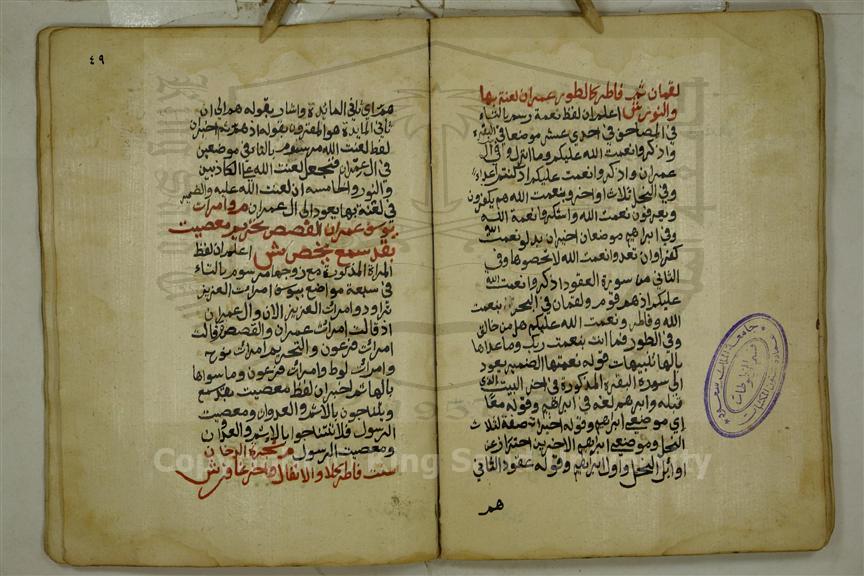 لقمان ثم فاطر كالطور عمران لعنة بها
والنور ش اعلم ان لفظ نعمة رسم بالتاء
في المصاحف في احدي عشر موضعا في البقرة
واذكروا نعمت الله عليكم وما انزل وفي آل
عمران واذكروا نعمت عليكم اذ كنتم اعداء
وفي النحل ثلاث اواخر وبنعمت الله هم يكفرون
ويعرفون نعمت الله واشكروا نعمة الله
وفي ابراهيم موضعان اخيران بدلو نعمت الله
كفرا وان تعدوا نعمت الله لا تحصوها وفي
الثاني من سورة العقود اذكروا نعمت الله
عليكم اذ هم قوم ولقمان في البحر بنعمت
الله وفاطر ونعمت الله عليكم هل من خالق
وفي الطور فما انت بنعمت ربك وما عداها
بالها تنبيهات قوله نعمتها الضمير يعود
الى سورة البقرة المذكورة في اخر البيت الذي
قبله وابرهم لغة في ابراهيم وقوله معا
اي موضعي ابراهيم وقوله اخيرات صفة لثلاث
النحل وموضعي ابراهيم الاخيرين احتراز عن
اوائل النحل واول ابراهيم وقوله عقود الثاني
هم
٤٩
هم اي ثاني المائدة واشار بقوله هم الى ان
ثاني المايدة هو المقترون بقوله اذ هم ثم اخبر ان
لفظ لعنت الله مرسوم بالتاء في موضعين
في ال عمران فنجعل لعنت الله على الكاذبين
والنور والخامسه ان لعنت الله عليه والضمير
في لعنة بها يعود الى ال عمران ص وامرات
يوسف عمران القصص تحريم معصيت
بقد سمع يخص ش اعلم ان لفظ
المراة المذكورة مع زوجها مرسوم بالتاء
في سبعة مواضع بيوسف امرات العزيز
تراود وامرات العزيز الان وال عمران
اذ قالت امرات عمران والقصص قالت
امرات فرعون والتحريم امرات نوح
وامرات لوط وامرات فرعون وما سواها
بالها ثم اخبر ان لفظ معصيت بقد سمع
ويتناجون بالاثم والعدوان ومعصيت
الرسول فلا تتناجوا بالاثم والعدوان
ومعصيت الرسول ص شجرة الدخان
سنت فاطر كلا والانفال واخر غافر ش
جامعة الملك سعود
قسم المخطوطات
Copyright © King Saud University
1957